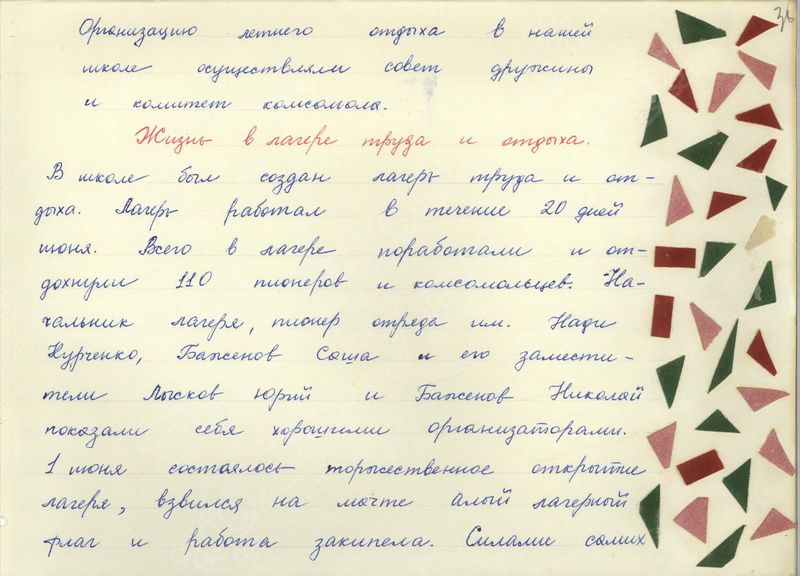 36
Организацию летнего отдыха в нашей
школе осуществляли совет дружины
и комитет комсомола.
Жизнь в лагере труда и отдыха.
В школе был создан лагерь труда и от-
дыха. Лагерь работал в течение 20 дней
июня. Всего в лагере поработали и от-
дохнули 110 пионеров и комсомольцев. На-
чальник лагеря, пионер отряда им. Нади
Курченко, Баженов Саша и его замести-
тели Лысков Юрий и Баженов Николай
показали себя хорошими организаторами.
1 июня состоялось торжественное открытие
лагеря, взвился на мачте алый лагерный
флаг и работа закипела. Силами самих